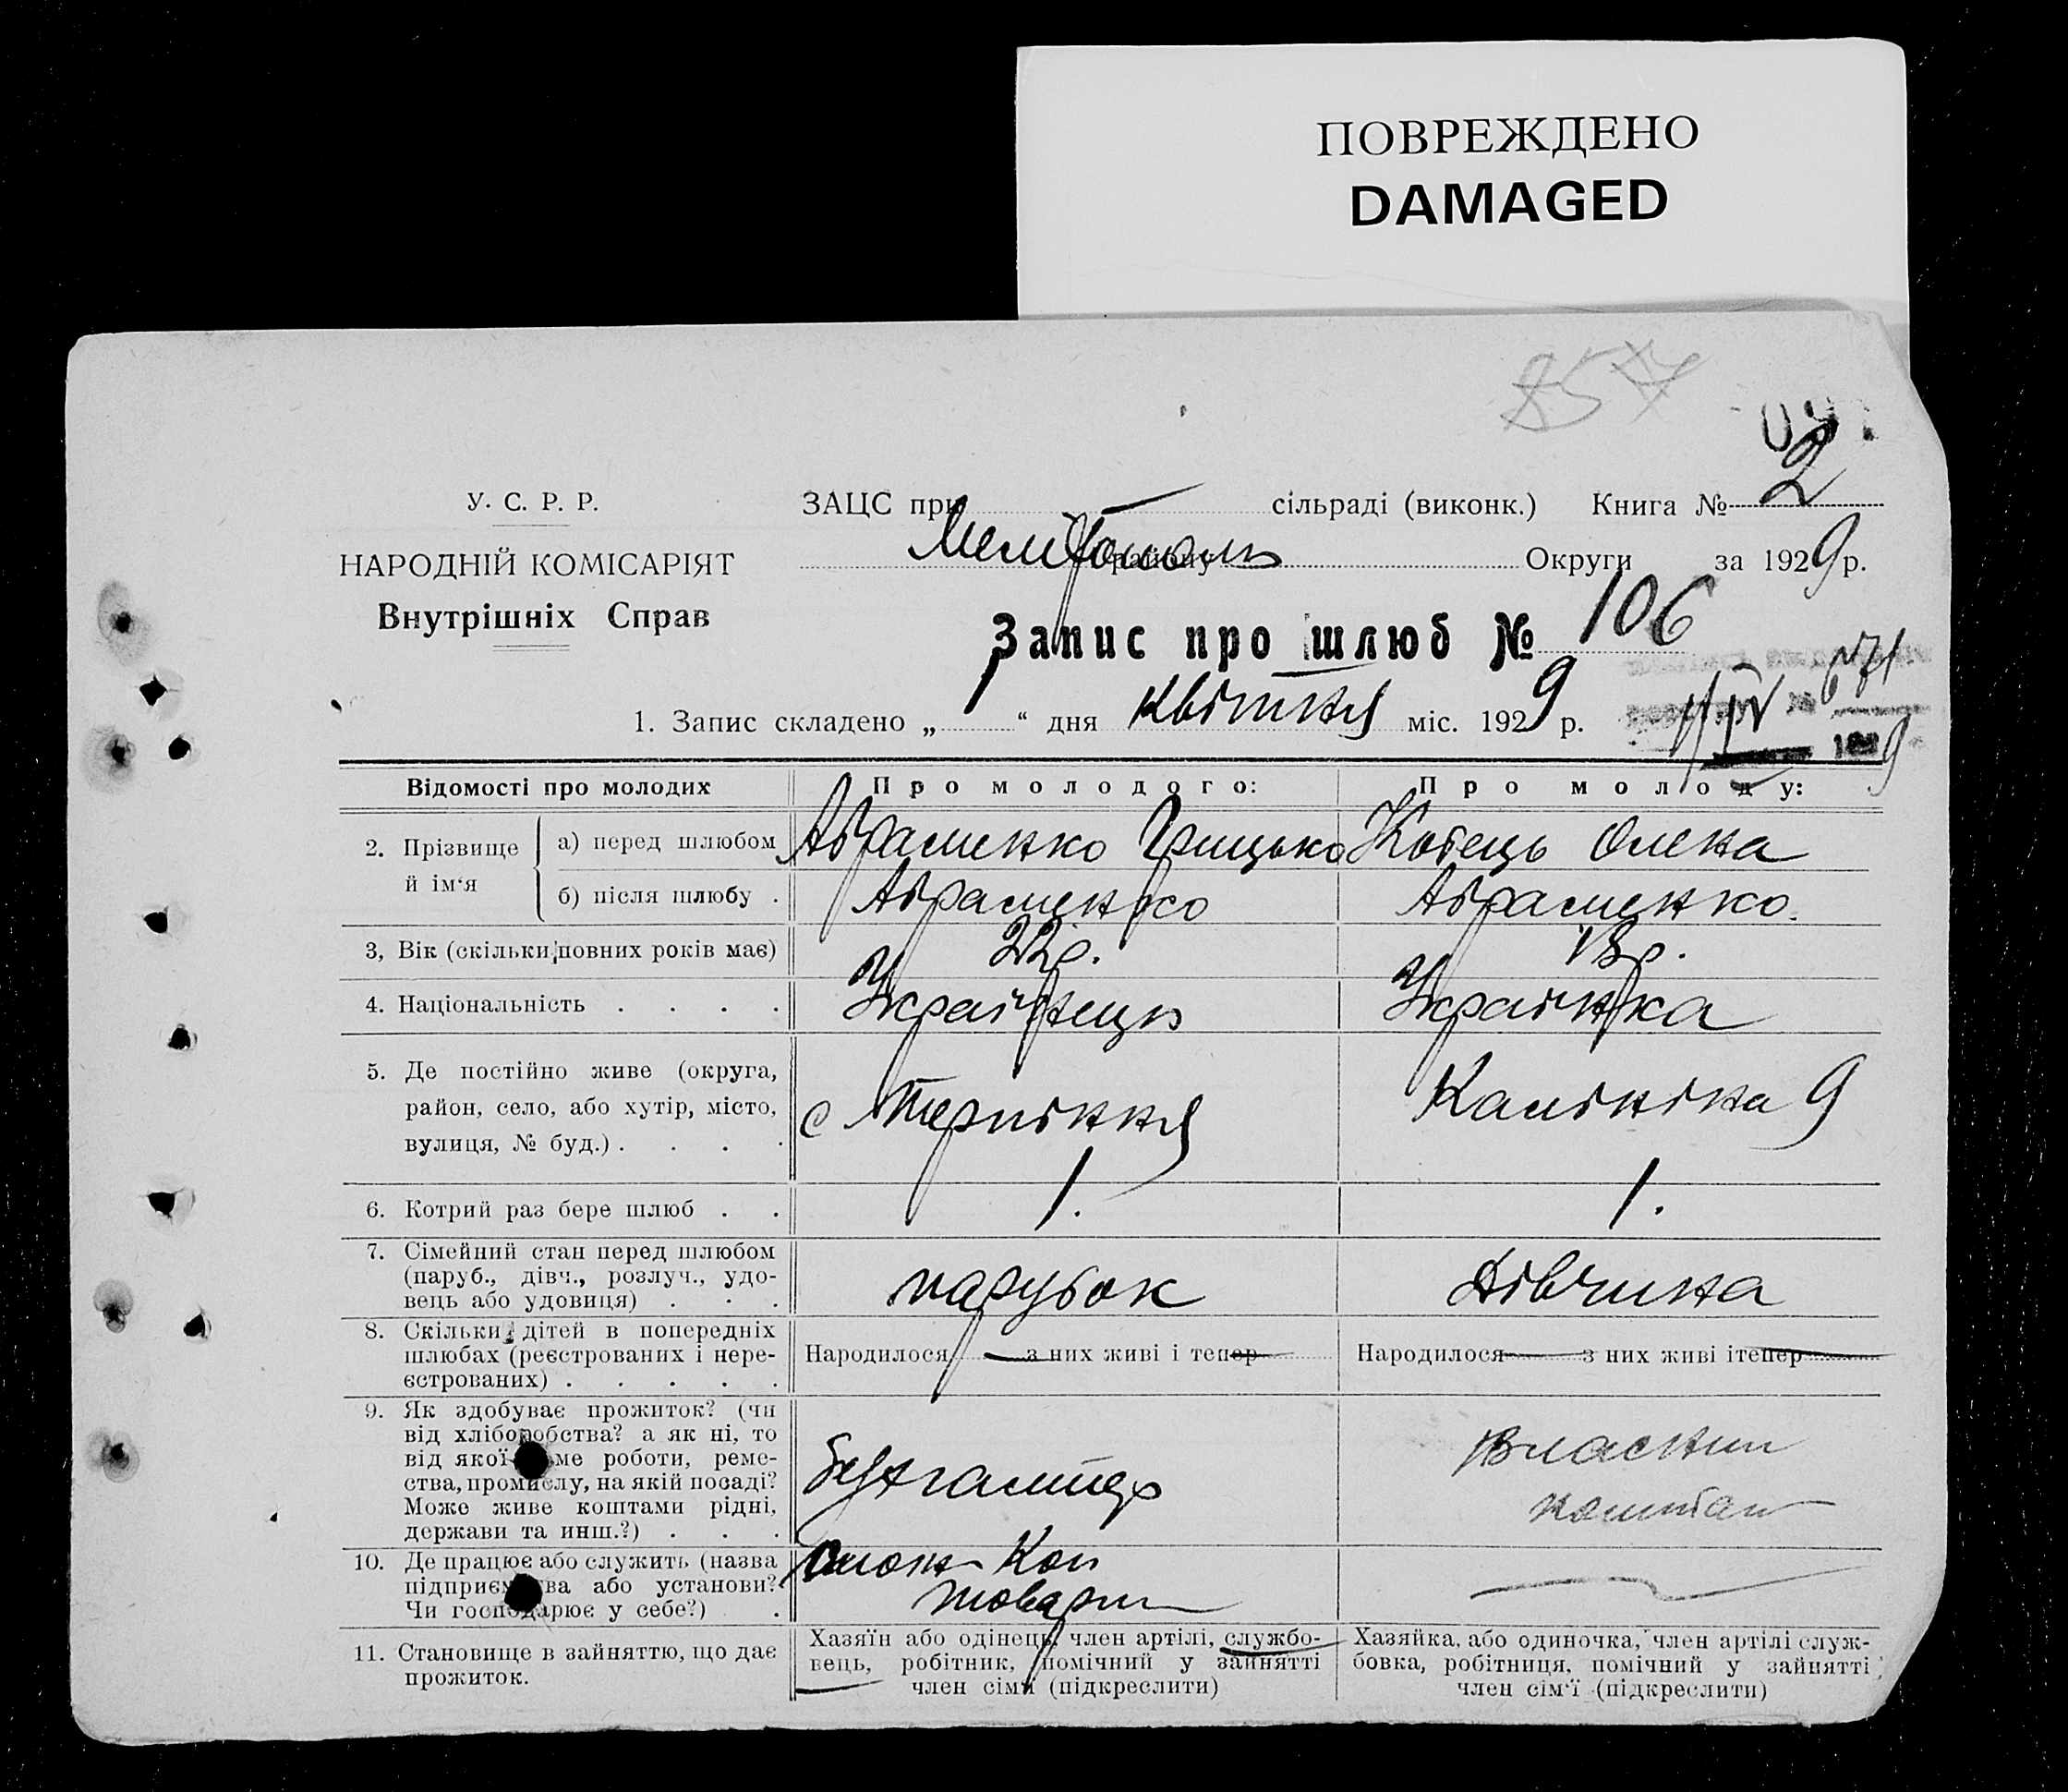 ПОВРЕЖДЕНО
DAMAGED
857
2
У. С. Р. Р.
НАРОДНІЙ КОМІСАРІЯТ
Внутрішніх Справ
ЗАЦС при сільраді (виконк.) Книга №
Мелітополь району Округи за 1929 р.
Запис про шлюб № 106
1. Запис складено „1“ дня Квітня міс. 1929 р.
Відомості про молодих
Про молодого:
Про молоду:
2. Прізвище й ім‘я
а) перед шлюбом
Абраменко Грицько
Котець Олена
б) після шлюбу .
Абраменко
Абраменко.
3, Вік (скільки повних років має)
22 р.
18 р.
4. Національність . . . .
Українець
Українка
5. Де постійно живе (округа,
район, село, або хутір, місто,
вулиця, № буд.) . . . .
с Терпіння
Калініна 9
6. Котрий раз бере шлюб . .
1.
1.
7. Сімейний стан перед шлюбом
(паруб., дівч., розлуч., удо-
вець або удовиця) . . .
парубок
дівчина
8. Скільки дітей в попередніх
шлюбах (реєстрованих і нере-
єстрованих) . . . . .
Народилося з них живі і тепер
Народилося з них живі і тепер
9. Як здобуває прожиток? (чи
від хліборобства? а як ні, то
від якої ме роботи, реме-
ства, промислу, на якій посаді?
Може живе коштами рідні,
держави та инш.?) . . .
Бухгалтер
Власни
коштан
10. Де працює або служить (назва
підприєм ва або установи?
Чи господарює у себе?) .
Коп
товари
11. Становище в зайняттю, що дає
прожиток.
Хазяїн або одінець, член артілі, службо-
вець, робітник, помічний у зайнятті
член сімї (підкреслити)
Хазяйка, або одиночка, член артілі служ-
бовка, робітниця, помічний у зайнятті
член сім‘ї (підкреслити)